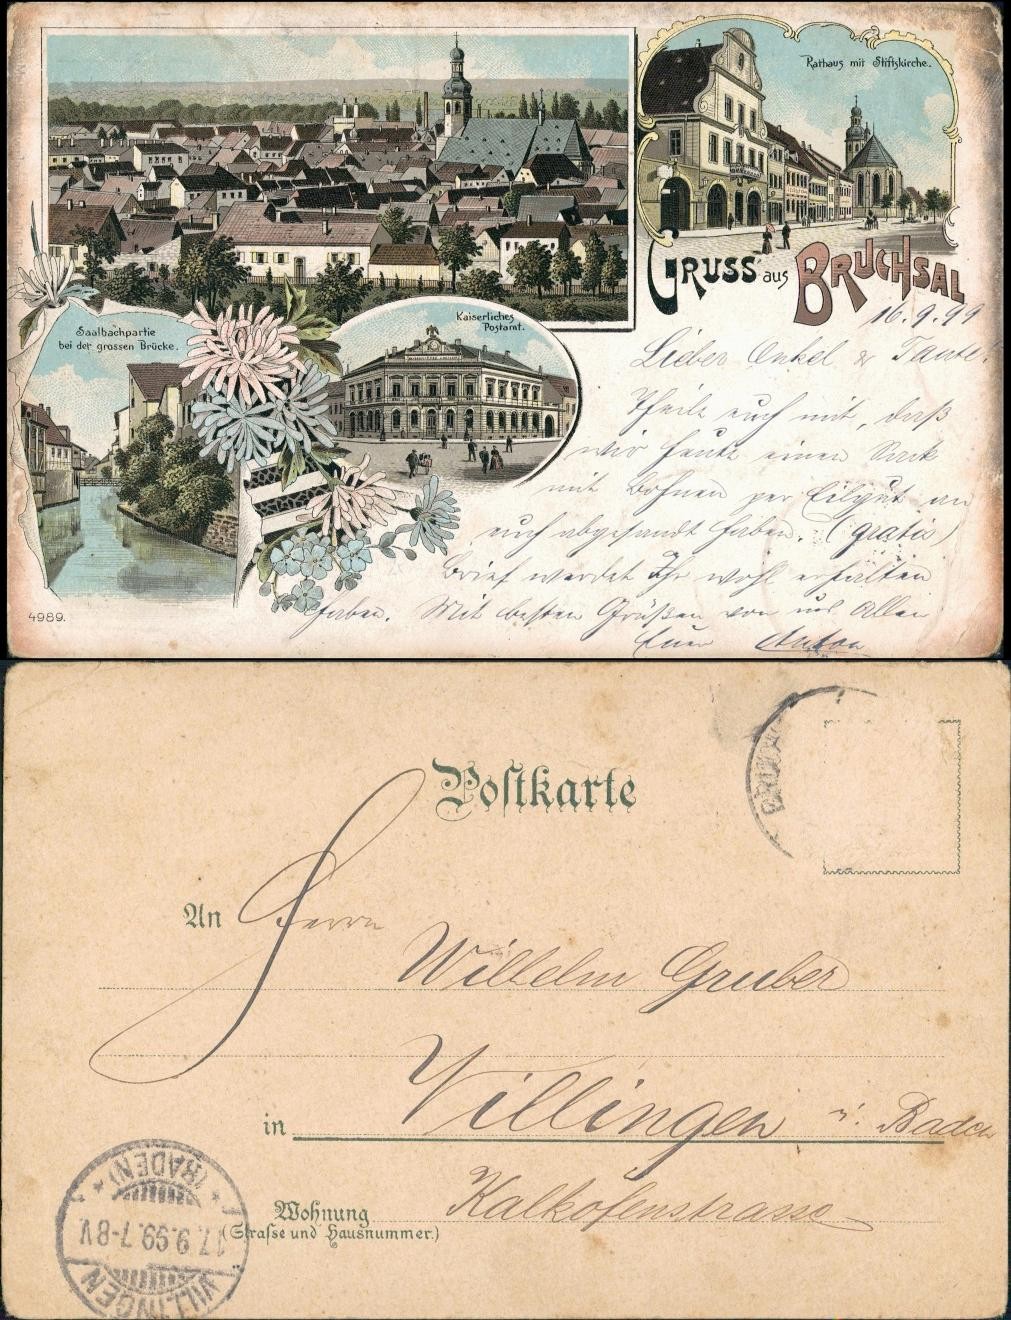 Rathaus mit Stiftskirche.
GRUSS aus BRUCHSAL
Kaiserliches
Postamt.
Saalbachpartie
bei der grossen Brücke.
16.9.99
Lieber Onkel & Tante!
Theile euch mit, daß
wir heute einen Sack
mit Bohnen per Eilgut an
euch abgesandt haben. (gratis)
Brief werdet Ihr wohl erhalten
haben. Mit besten Grüßen von uns Allen
Euer Anton
4989.
Postkarte
An Herrn
Wilhelm Gruber
in Villingen i. Baden
Wohnung Kalkofenstrasse
(Straſse und Hausnummer.)
VILLINGEN
17.9.99.7-8V.
* (BADEN) *